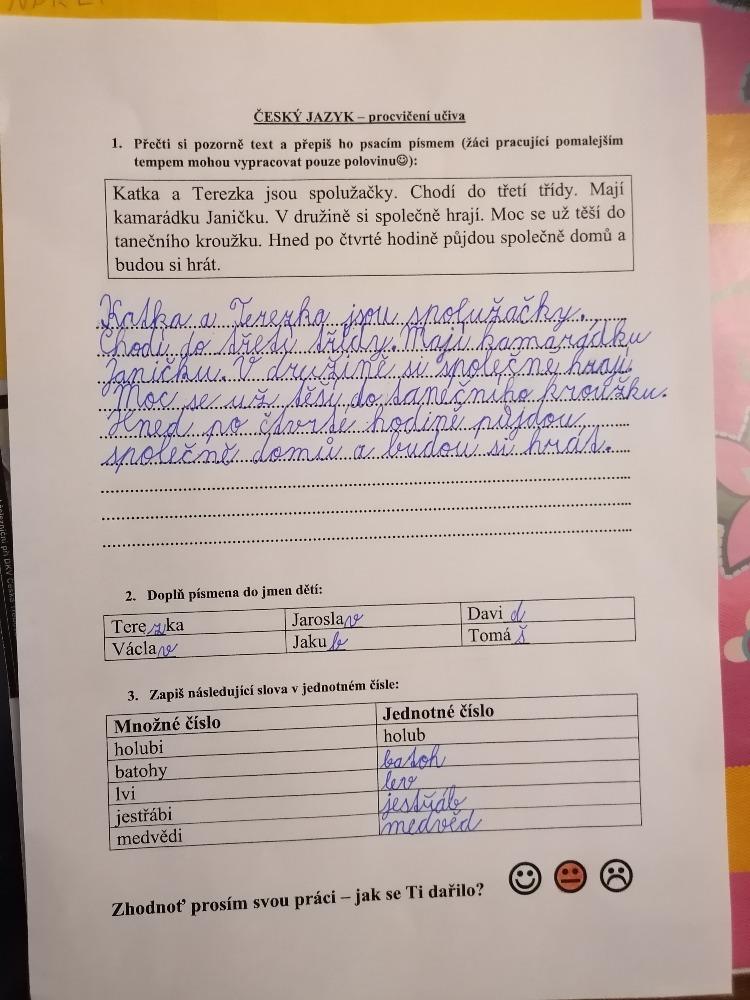 ČESKÝ JAZYK – procvičení učiva
1. Přečti si pozorně text a přepiš ho psacím písmem (žáci pracující pomalejším
tempem mohou vypracovat pouze polovinu☺):
Katka a Terezka jsou spolužačky. Chodí do třetí třídy. Mají
kamarádku Janičku. V družině si společně hrají. Moc se už těší do
tanečního kroužku. Hned po čtvrté hodině půjdou společně domů a
budou si hrát.
Katka a Terezka jsou spolužačky.
Chodí do třetí třídy. Mají kamarádku
Janičku. V družině si společně hrají.
Moc se už těší do tanečního kroužku.
Hned po čtvrté hodině půjdou
společně domů a budou si hrát.
2. Doplň písmena do jmen dětí:
Terezka Jaroslav David
Václav Jakub Tomáš
3. Zapiš následující slova v jednotném čísle:
Množné číslo Jednotné číslo
holubi holub
batohy batoh
lvi lev
jestřábi jestřáb
medvědi medvěd
Zhodnoť prosím svou práci – jak se Ti dařilo?